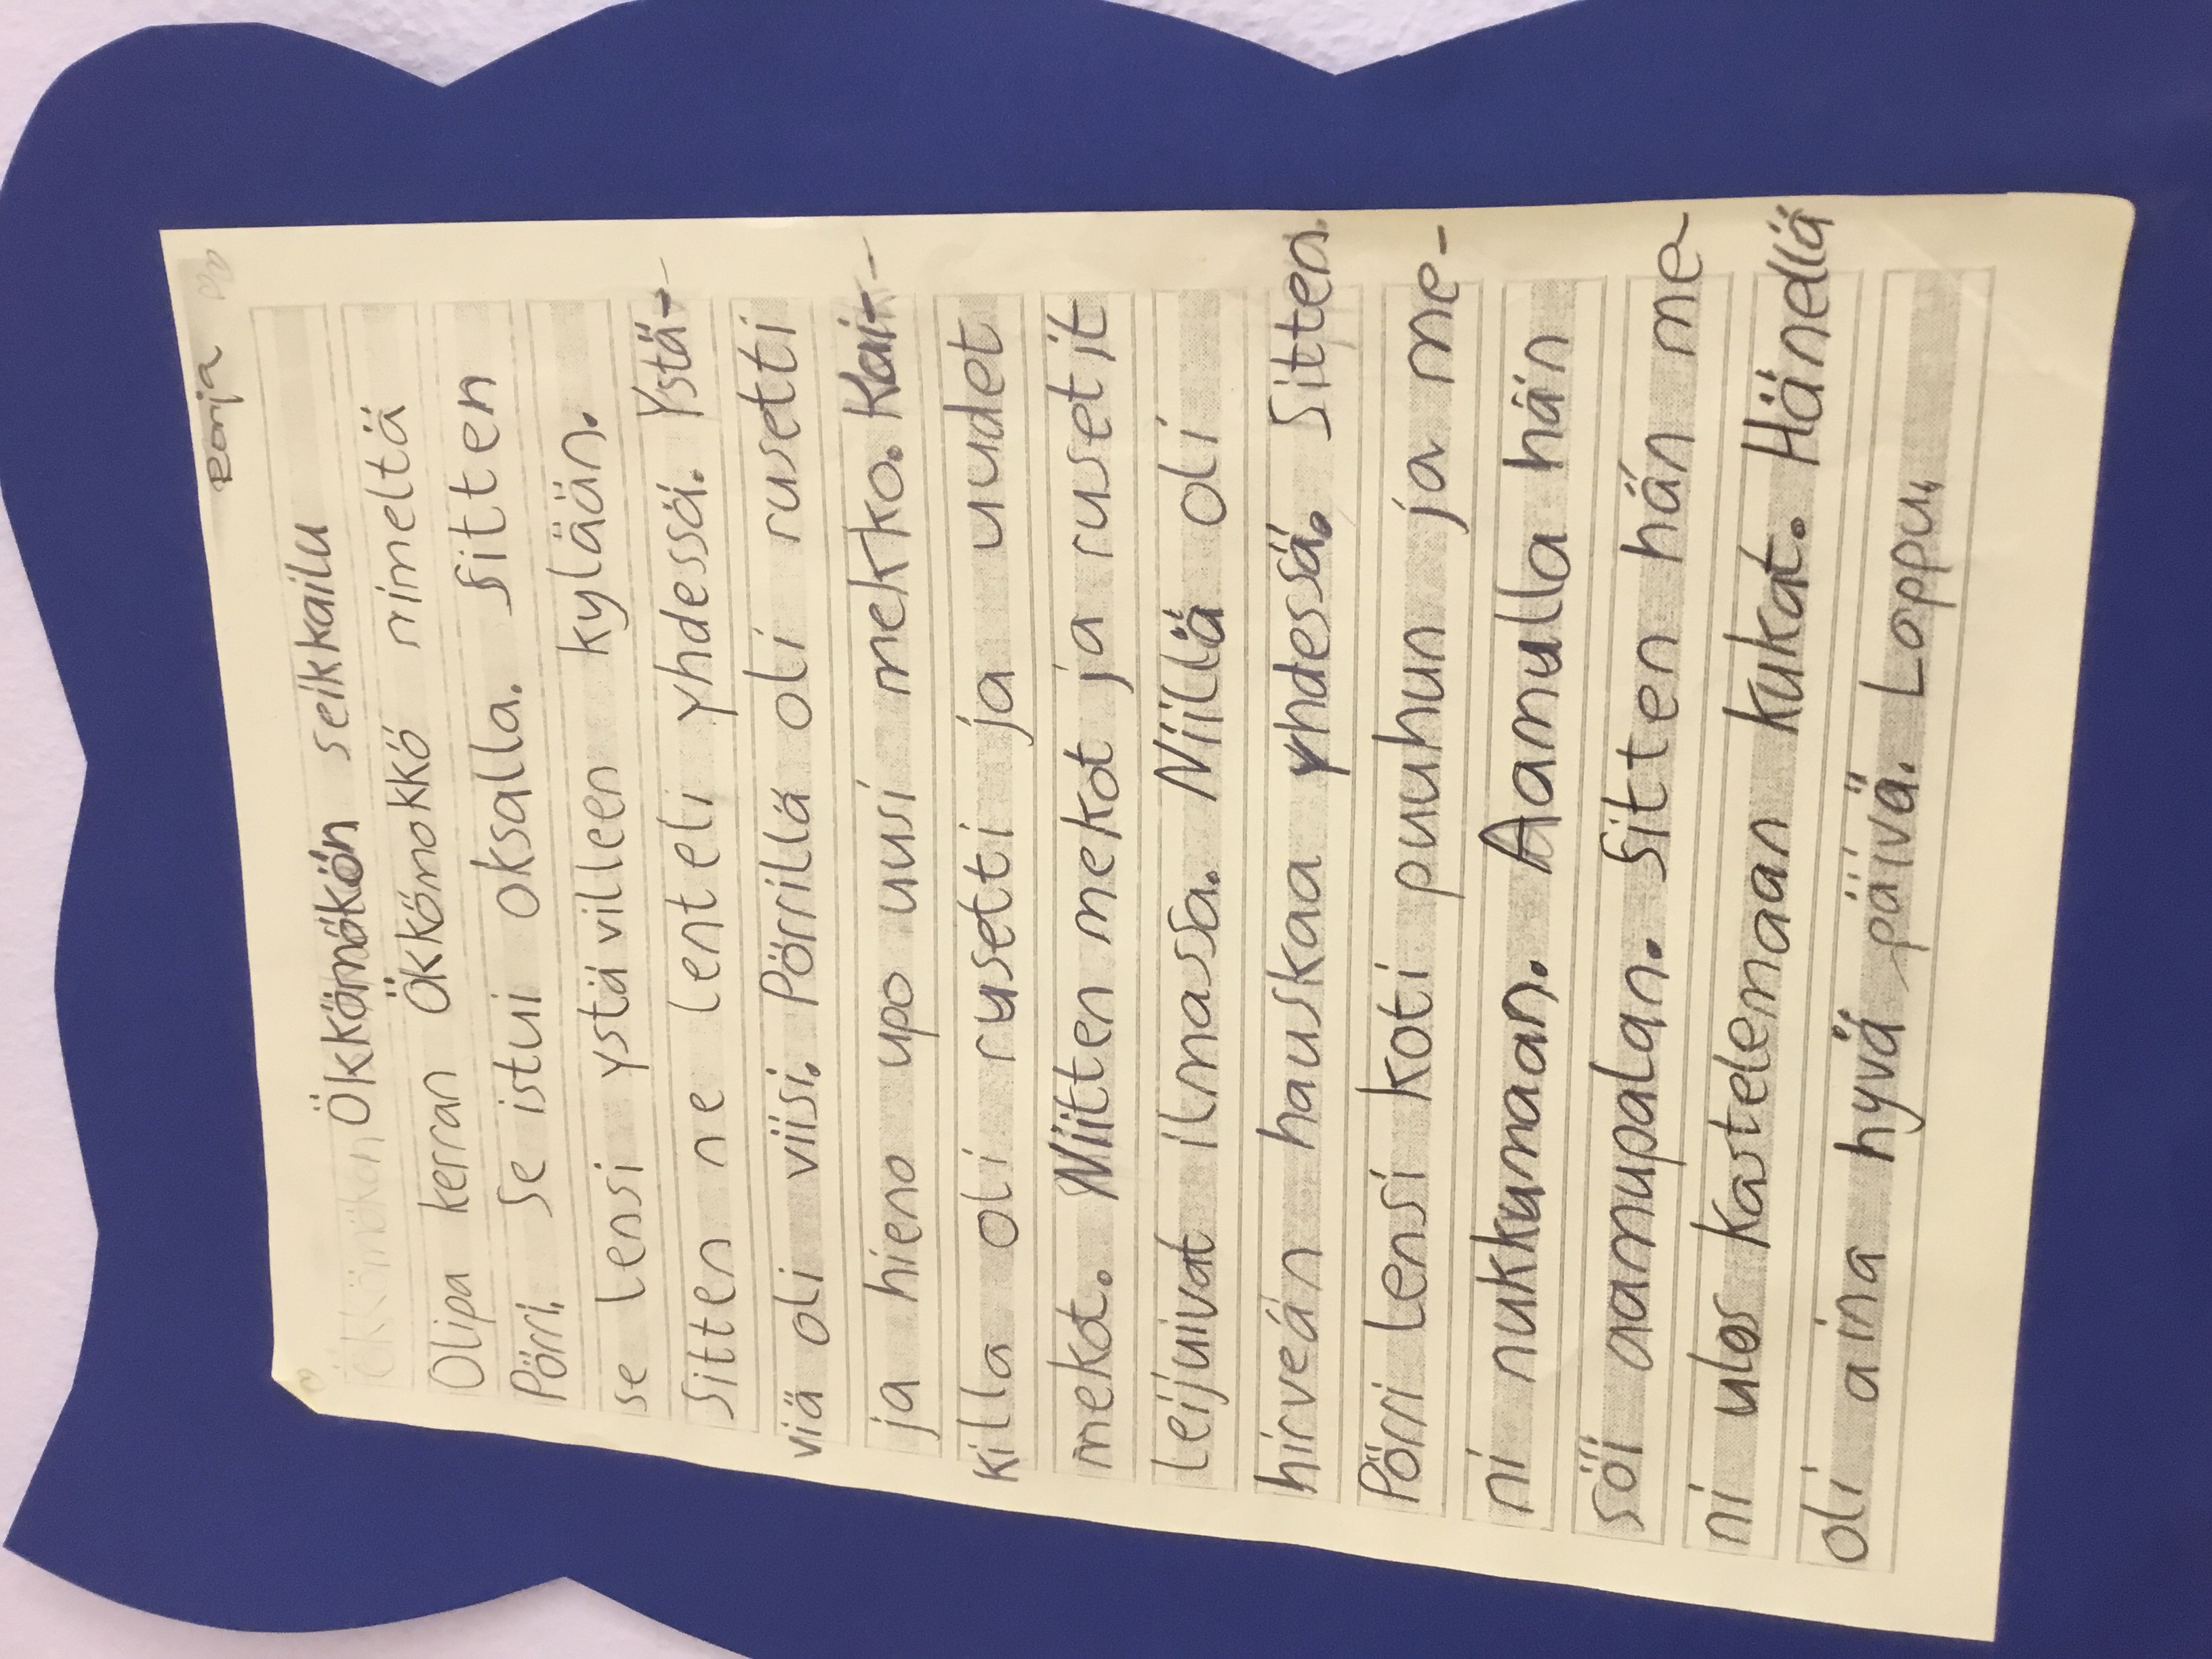 Ronja
Ökkömökön seikkailu
Olipa kerran Ökkömökkö nimeltä
Pörri. Se istui oksalla. Sitten
se lensi ystävilleen kylään.
Sitten ne lenteli yhdessä. Ystä-
viä oli viisi. Pörrillä oli rusetti
ja hieno upo uusi mekko. Kai-
killa oli rusetti ja uudet
mekot. Niitten mekot ja rusetit
leijuivat ilmassa. Niillä oli
hirveän hauskaa yhdessä. Sitten
Pörri lensi koti puuhun ja me-
ni nukkumaan. Aamulla hän
söi aamupalan. Sitten hän me
ni ulos kastelemaan kukat. Hänellä
oli aina hyvä päivä. Loppu.